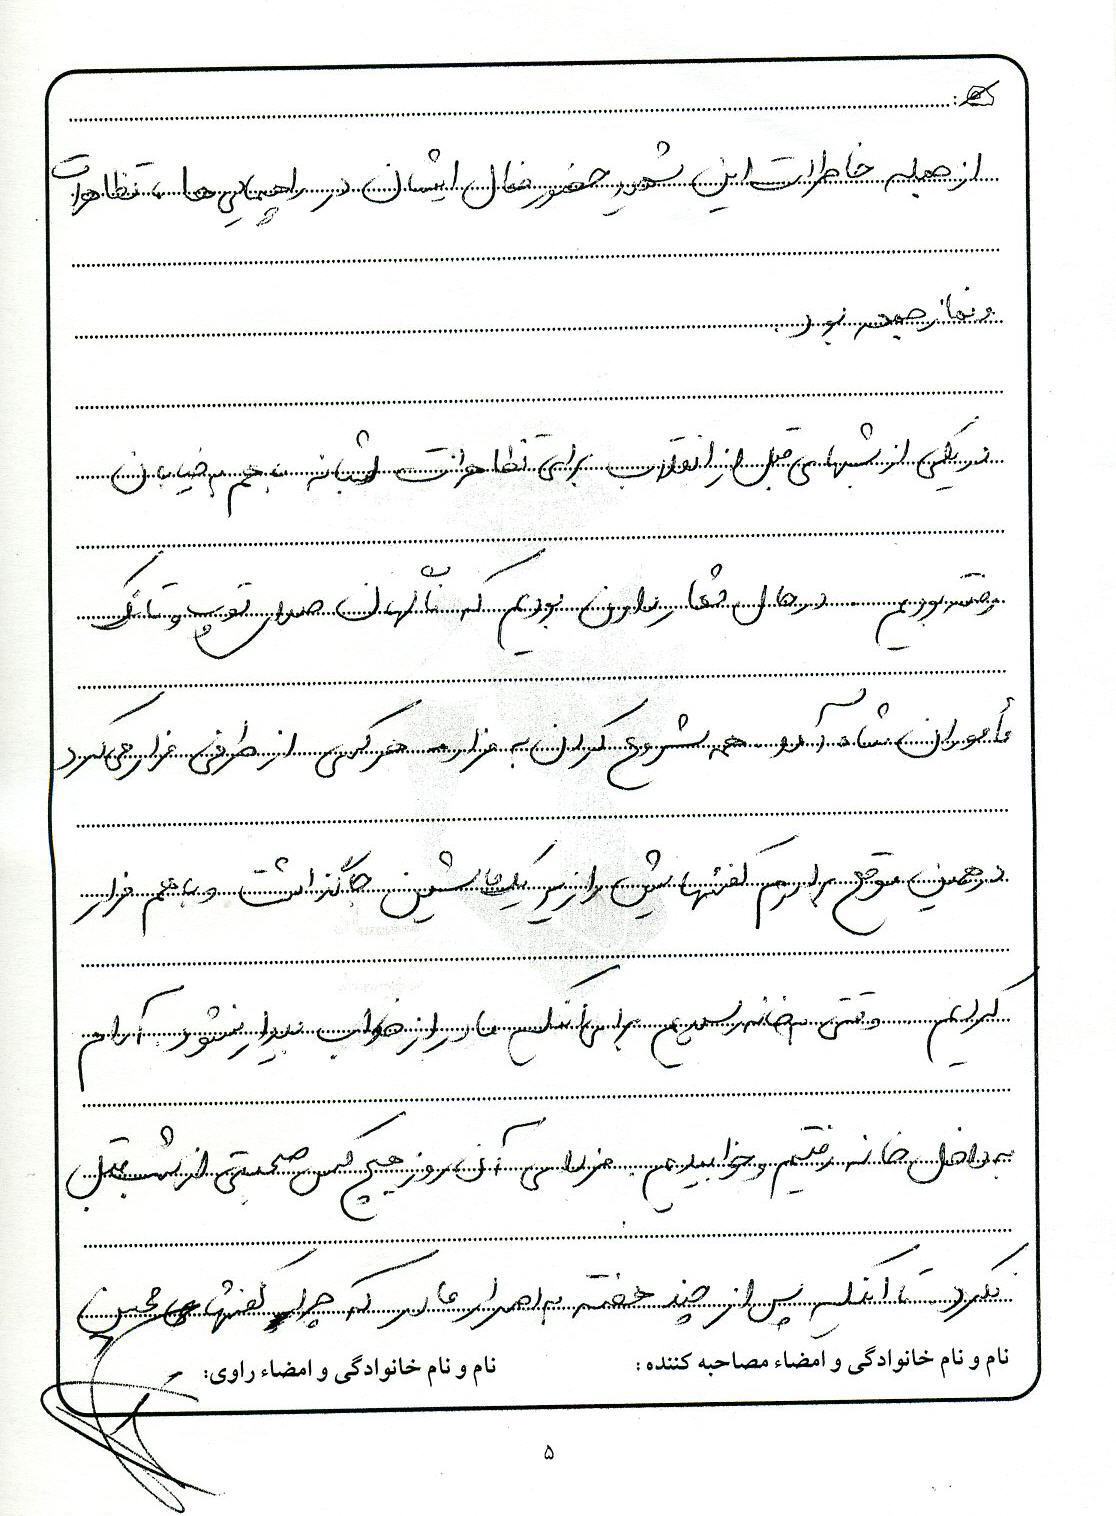 از جمله خاطرات این شهید حضور فعال ایشان در راهپیمایی ها ، تظاهرات
و نماز جمعه بود.
در یکی از شبهای قبل از انقلاب برای تظاهرات شبانه با هم به خیابان
رفته بودیم در حال شعار دادن بودیم که ناگهان صدای توپ و تانک
مأموران شاه آمد همه شروع کردن به فرار هر کسی از طرفی فرار می کرد
در همین موقع برادرم کفشهایش را زیر یک ماشین جا گذاشت و با هم فرار
کردیم وقتی به خانه رسیدیم برای اینکه مادر از خواب بیدار نشود آرام
به داخل خانه رفتیم و خوابیدیم. فردای آن روز هیچ کس صحبتی از شب قبل
نکرد تا اینکه پس از چند هفته به اصرار مادر که چرا کفشهای
نام و نام خانوادگی و امضاء مصاحبه کننده : نام و نام خانوادگی و امضاء راوی:
۵